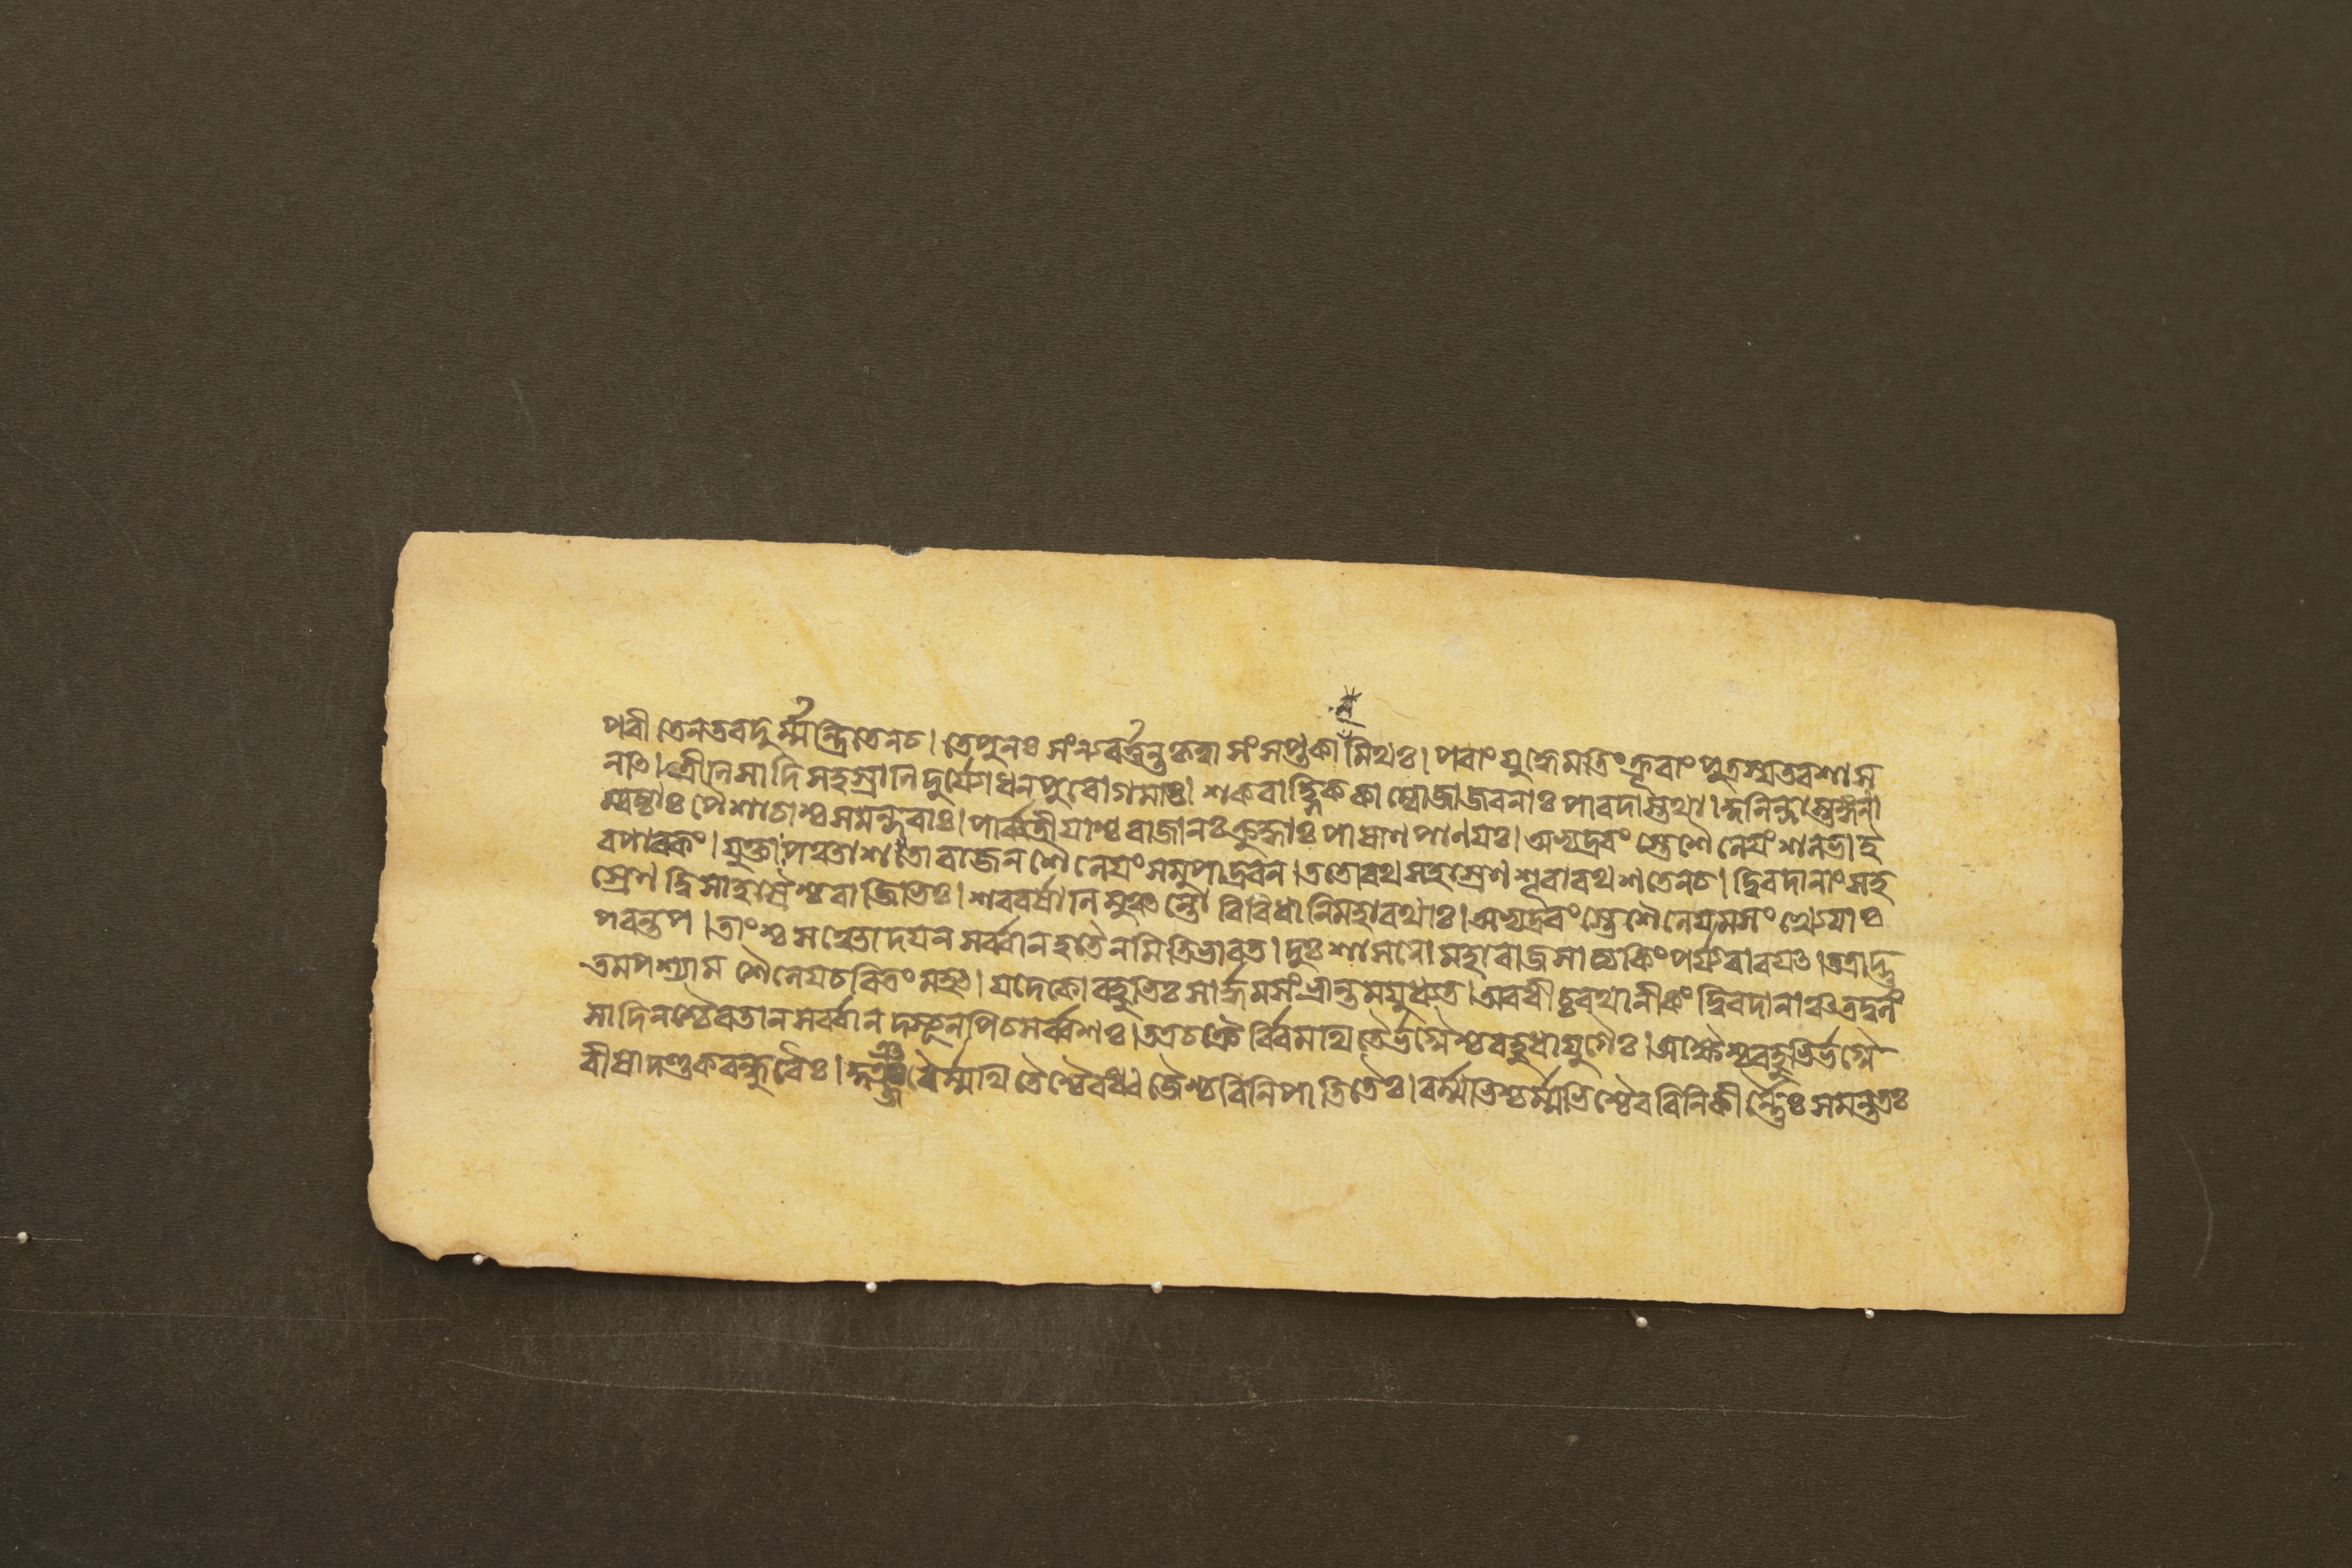 পরীতেন তব দুর্ম্মন্ত্রিতেন চ। তে পুনঃ সংন্যবর্ত্তন্ত কৃত্বা সংসপ্তকা মিথঃ। পরাং যুদ্ধে মতিং ক্রূরাং পুত্রস্য তব শাস
নাৎ। ত্রীনি সাদিসহস্রানি দুর্যোধনপুরোগমাঃ। শকবাহ্লিককাম্বোজা জবনাঃ পারদাস্তথা। কুনিন্দাস্তঙ্গনা
ম্বষ্ঠাঃ পৈশাচাশ্চ সমন্দরাঃ। পার্ব্বতীয়াশ্চ রাজানঃ ক্রুদ্ধাঃ পাষাণপাণয়ঃ। অভ্যদ্রবংস্তে শৈনেয়ং শলভা ই
ব পাবকং। যুক্তা রাজেন শৈনেয়ং সমুপাদ্রবন। ততো রথসহস্রেণ শূরা রথশতেন চ। দ্বিরদানাং সহ
স্রেণ দ্বিসাহস্রৈশ্চ বাজিভিঃ। শরবর্ষানি মুঞ্চন্তো বিবিধানি মহারথাঃ। অভ্যদ্রবংস্তে শৈনেয়মসংখ্যেয়াঃ
পরন্তপ। তাংশ্চ সঞ্চোদয়ন সর্ব্বান হতৈনমিতি ভারত। দুঃশাসনো মহারাজ সাত্যকিং পর্য্যবারয়ৎ। তত্রাদ্ভু
তমপশ্যাম শৈনেয়চরিতং মহৎ। যদেকো বহুভিঃ সার্দ্ধমসংভ্রান্তমযুধ্যত। অবধীচ্চ রথানীকং দ্বিরদানাঞ্চ তদ্বলং
সাদিনশ্চৈব তান সর্ব্বান দস্যূনপি চ সর্ব্বশঃ। তত্র চক্রৈর্বিমথিতৈর্ভগ্নৈশ্চ বহুধায়ুধৈঃ। অক্ষৈশ্চ বহুভির্ভগ্নৈ
রীষাদণ্ডকবন্ধুরৈঃ। কুঞ্জরৈর্ম্মথিতৈশ্চৈব ধ্বজৈশ্চ বিনিপাতিতৈঃ। বর্ম্মভিশ্চর্ম্মভিশ্চৈব বিনিকীর্ণ্ণৈঃ সমন্ততঃ